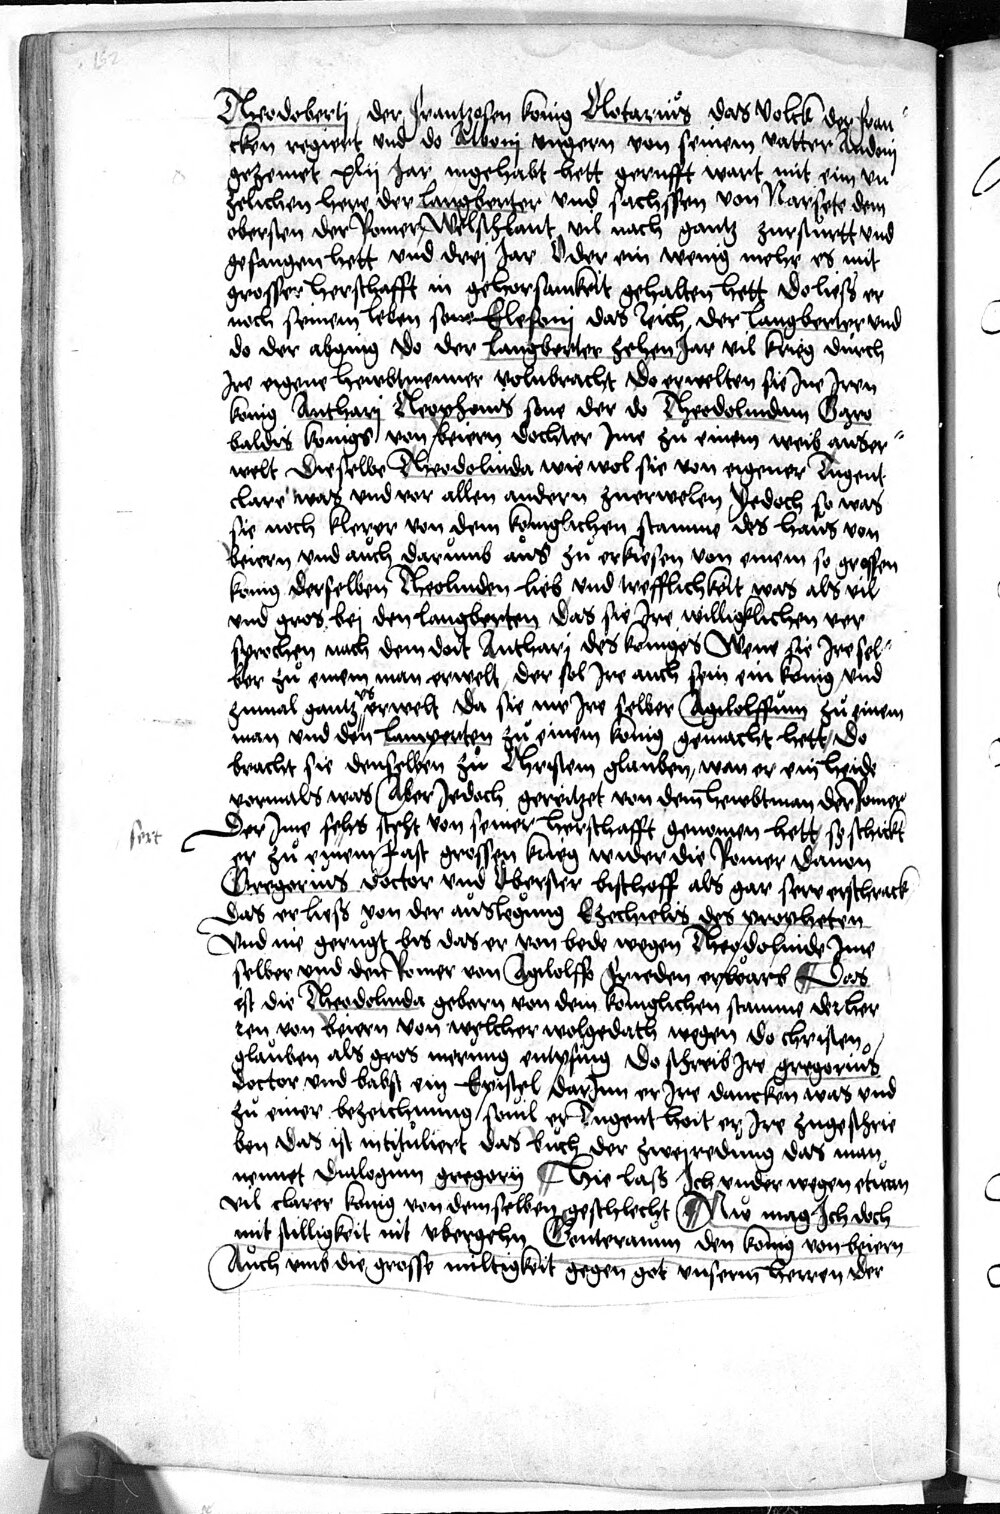 132
Theodoberti der frantzosen konig Clotarius das volck der fran=
cken regiert und do Alboni ungern von seinem vatter Andoni
gezemet xlij Jar ingehabt hett gerufft wart mit eim vn
zelichen here der langberter und sachssen von Narsete dem
obersten der Romer Welschlant vil nach gantz zurstürtt und
gefangen hett und drei Jar Oder ein wenig mehr es mit
grosser herschafft in gehorsamkeit gehalten hett Do ließ er
noch seinem leben sone Klefoni das reich der langberter und
do der abging Do der langberter zehen Jar vil krieg durch
ire eigene hewbtmenner volnbracht Do erwelten sie Ine Iren
konig Anthari Cleophonis sone der do Theodolindam Garo
baldis konigs von beiern dochter Ime zu einem weib ausser=
welt Dieselbe Theodolinda wie wol sie von eigener Tugent
clare was und vor allen andern zuerwelen Yedoch so was
sie noch klerer von dem koniglichen stamme des haus von
beiern und auch darumb aus zu erkiesen von einem so grossen
konig derselben Theolinden lieb und trefflichkeit was als vil
und gros bei den langberten das sie Ire williglichen ver
sprochen nach dem doit Anthari des koniges Wene sie Ire sel=
ber zu einem man erwelt der sol Ire auch sein ein konig und
zumal gantz erwelt Da sie nu Ire selber Agilolffum zu einem
man und den lamperten zu einem konig gemacht hett Do
bracht sie denselben zu Christem glauben wan er ein heide
vormals was Aber Jedoch gereitzet von dem hewbtman der Romer
Der Ime sehs stett von seiner herschafft genomen hett so schickt
er zu einem fast grossen krieg wider die Romer Davon
Gregorius doctor und Oberster bischoff als gar sere erschrack
Das er ließ von der auslegung Ezechielis des propheten
Und nie gerugt bis das er von bede wegen Theodolinde Ime
selber und den Romer von Agilolffo frieden erwarb Das
ist die Theodolinda geborn von dem koniglichen stamme der her
ren von beiern von welcher wolgedach wegen do christen
glauben als gros merung entpfing Do schreib Ire gregorius
doctor und babst ein Epistel darInn er Ire dancken was und
zu einer bezeichnung sovil er Tugent hait er Ire zugeschrie
ben Das ist intituliert das buch der zweiredung das man
nennet Dialogum gregorij Hie laß Ich under wegen etwan
vil clarer konig von demselben geschlecht Nu mag Ich doch
mit stilligkeit nit ubergehn Centeramum den konig von beiern
Auch umb die grosse miltigkeit gegen got unserm herren der